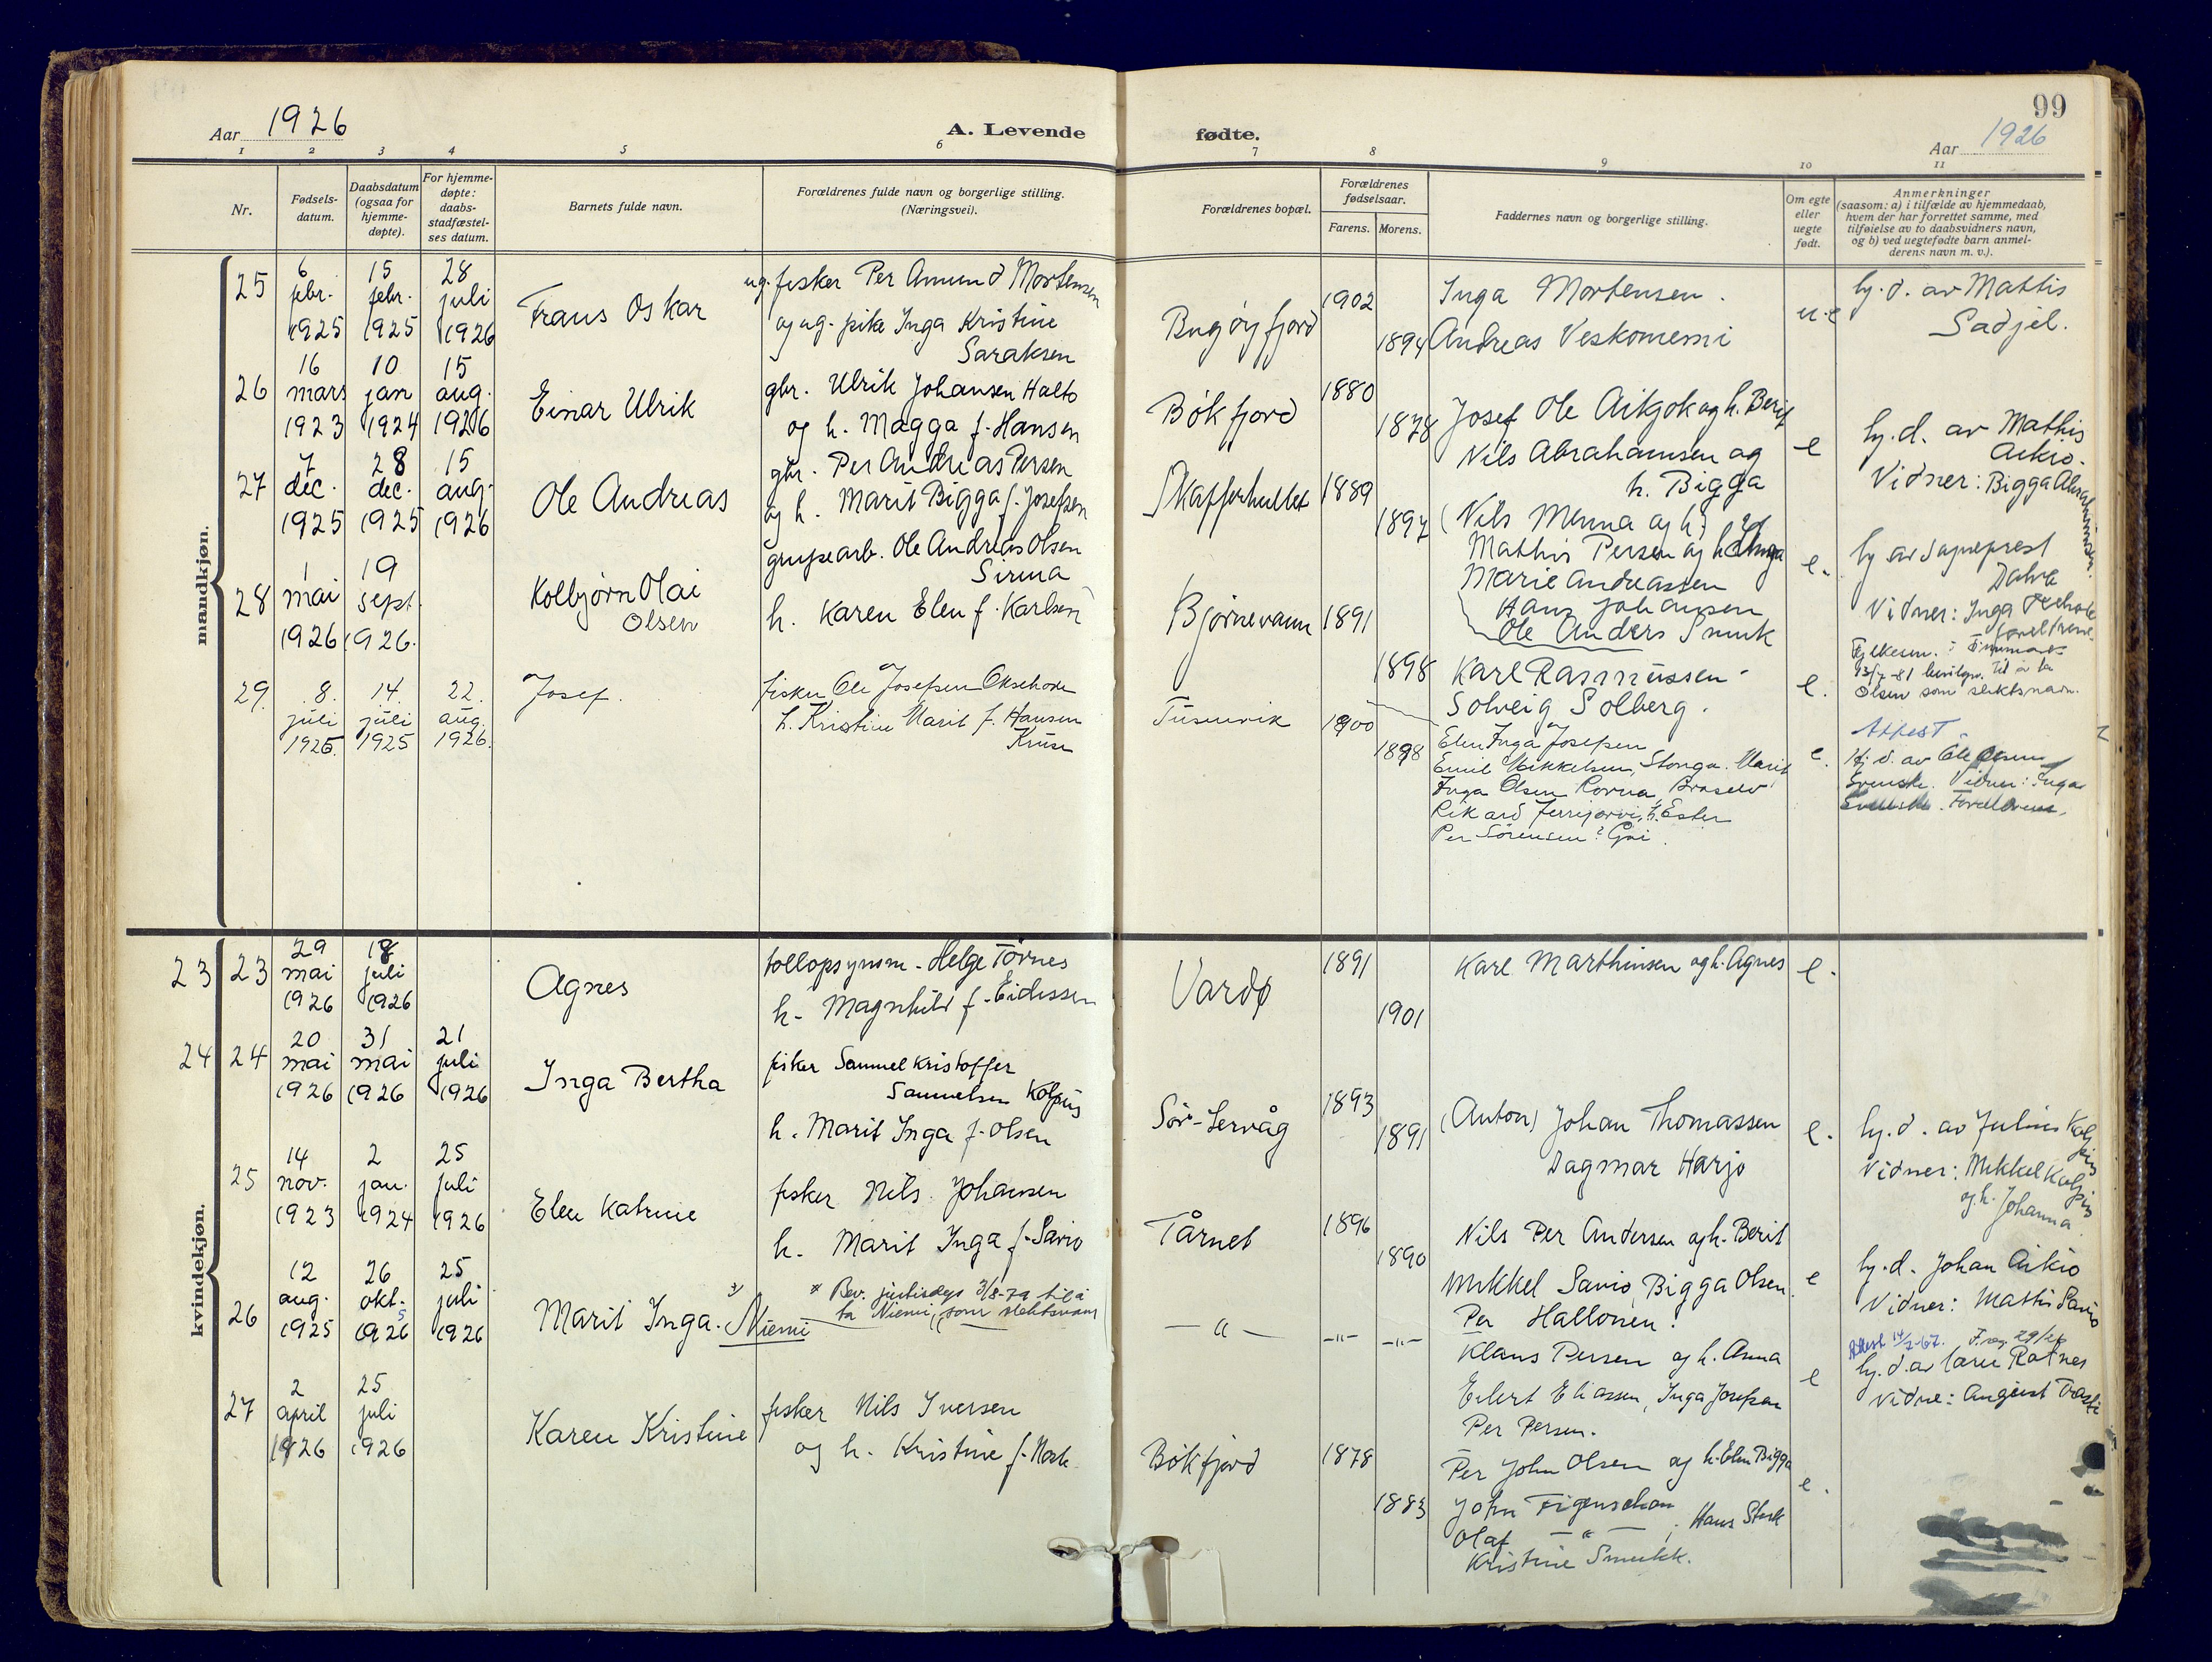 99
Aar 1926
A. Levende fødte.
Aar 1926
1 2 3 4 5 6 7 8 9 10 11
Nr.
Fødsels-
datum.
Daabsdatum
(ogsaa for
hjemme-
døpte).
For hjemme-
døpte:
daabs-
stadfæstel-
ses datum.
Barnets fulde navn.
Forældrenes fulde navn og borgerlige stilling.
(Næringsvei).
Forældrenes bopæl.
Forældrenes
fødselsaar.
Farens. Morens.
Faddernes navn og borgerlige stilling.
Om egte
eller
uegte
født.
Anmerkninger
(saasom: a) i tilfælde av hjemmedaab,
hvem der har forrettet samme, med
tilføielse av to daabsvidners navn,
og b) ved uegtefødte barn anmel-
derens navn m. v.).
mandkjøn.
25
6
febr.
1925
15
febr.
1925
28
juli
1926
Frans Oskar
ug. fisker Per Amund Mortensen
og ug. pike Inga Kristine
Saraksen
Bugøyfjord
1902
1894
Inga Mortensen.
Andreas Veskoniemi
u.e
hj. d. av Mattis
Sadjel.
26
16
mars
1923
10
jan
1924
15
aug.
1926
Einar Ulrik
gbr. Ulrik Johansen Halto
og h. Magga f. Hansen
Bøkfjord
1880
1878
Josef Ole Aikjok og h. Berit
Nils Abrahamsen og
h. Bigga
e
hj. d. av Mathis
Aikio.
Vidner: Bigga Abrahamsen.
27
7
dec.
1925
28
dec.
1925
15
aug.
1926
Ole Andreas
gbr. Per Andreas Persen
og h. Marit Bigga f. Josefsen
Skafferhullet
1889
1897
(Nils Menna og h)
Mathis Persen og h. Inga
Marie Andreassen
Hans Johansen
Ole Anders Smuk
e.
hj av sogneprest
Dahle
Vidner: Inga
28
1
mai
1926
19
sept.
1926.
Kolbjørn Olai
Olsen
grupearb. Ole Andreas Olsen
Sirma
h. Karen Elen f. Karlsen
Bjørnevann
1891
1898
Karl Rasmussen
Solveig Solberg.
e.
Fylkesm. i Finnmark
13/7-81 bevilgn. til å ta
Olsen som slektsnavn.
29.
8.
juli
1925.
14.
juli
1925
22.
aug.
1926.
Josef.
fisker Ole Josefsen Oksehode
h. Kristine Marit f. Hansen
Kruse
1900
1898
Elen Inga Josefsen
Emil Mikkelsen, Stonga. Marit
Inga Olsen Rovna
Rikard Jerijervi, h. Ester
Per Sørensen
e.
Attest
Hj. d. av Ole Olsen
Svenske. Vidner: Inga
Svenske. Foreldrene.
kvindekjøn.
23 23
29
mai
1926
18
juli
1926
Agnes
tollopsynsm. Helge Törnes
h. Magnhild f. Eidissen
Vardø
1891
1901
Karl Marthinsen og h. Agnes
e.
24 24
20
mai
1926
31
mai
1926
21
juli
1926
Inga Bertha
fisker Samuel Kristoffer
Samuelsen Kolpus
h. Marit Inga f. Olsen
Sör-Lervåg
1893
1891
(Anton) Johan Thomassen
Dagmar Harjo
e.
hj. d. av Julius
Vidner: Mikkel
og h. Johanna
25
14
nov.
1923
2
jan.
1924
25
juli
1926
Elen Katrine
fisker Nils Johansen
h. Marit Inga f. Savio
Tårnet
1896
1890
Nils Per Andersen og h. Berit
Mikkel Savio, Bigga Olsen.
Per Hallonen.
e
hj. d. Johan Aikio
Vidner: Mattis Savio
26
12
aug.
1925
26
okt.
1926 5
25
juli
1926
Marit Inga. Niemi
* Bev. justisdep 3/8-79 til å
ta Niemi som slektsnavn
— " —
— " — — " —
Klaus Persen og h. Anna
Edert Eliassen, Inga Josefsen
Per Persen.
e
Attest 14/2-67. F.reg. 29/26
hj. d. av lærer Rotnes
Vidne: August
27
2
april
1926
25
juli
1926
Karen Kristine
fisker Nils Iversen
og h. Kristine f. Mark
Bökfjord
1878
1883
Per John Olsen og h. Elen Bigga
John Figenschou
Olaf — " — , Hans Stark
Kristine Smukk.
e.